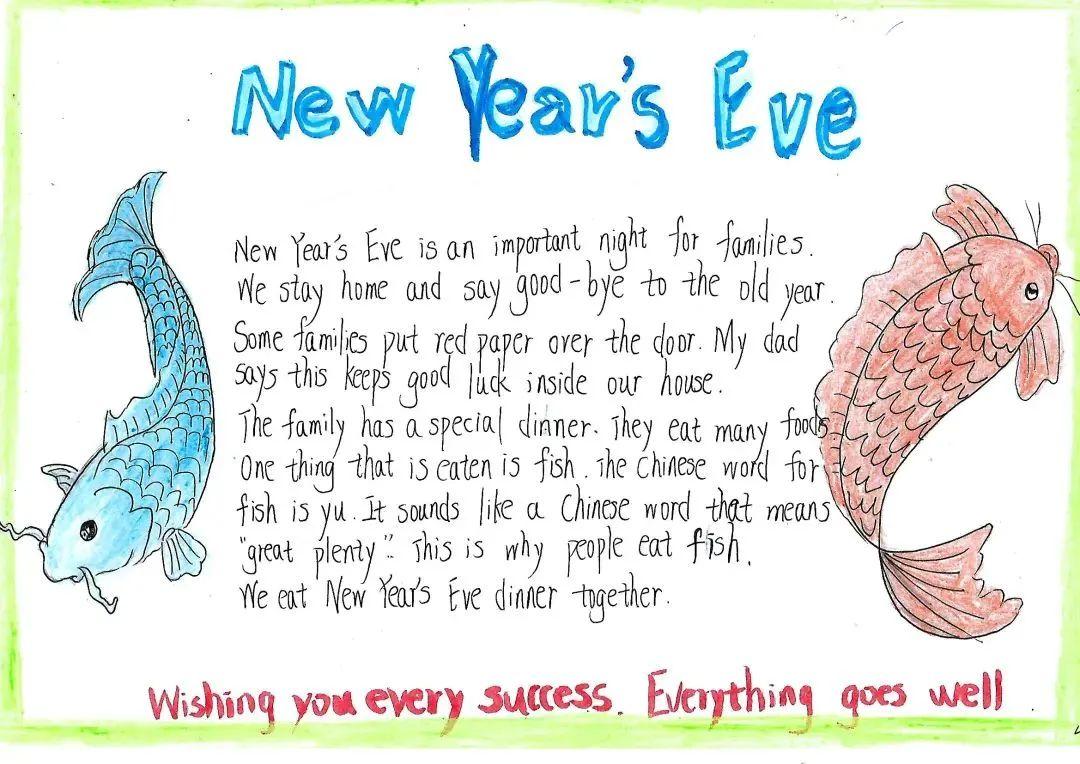 New Year's Eve
New Year's Eve is an important night for families.
We stay home and say good-bye to the old year.
Some families put red paper over the door. My dad
says this keeps good luck inside our house.
The family has a special dinner. They eat many foods
One thing that is eaten is fish. The Chinese word for
fish is yu. It sounds like a Chinese word that means
"great plenty". This is why people eat fish.
We eat New Year's Eve dinner together.
Wishing you every success. Everything goes well